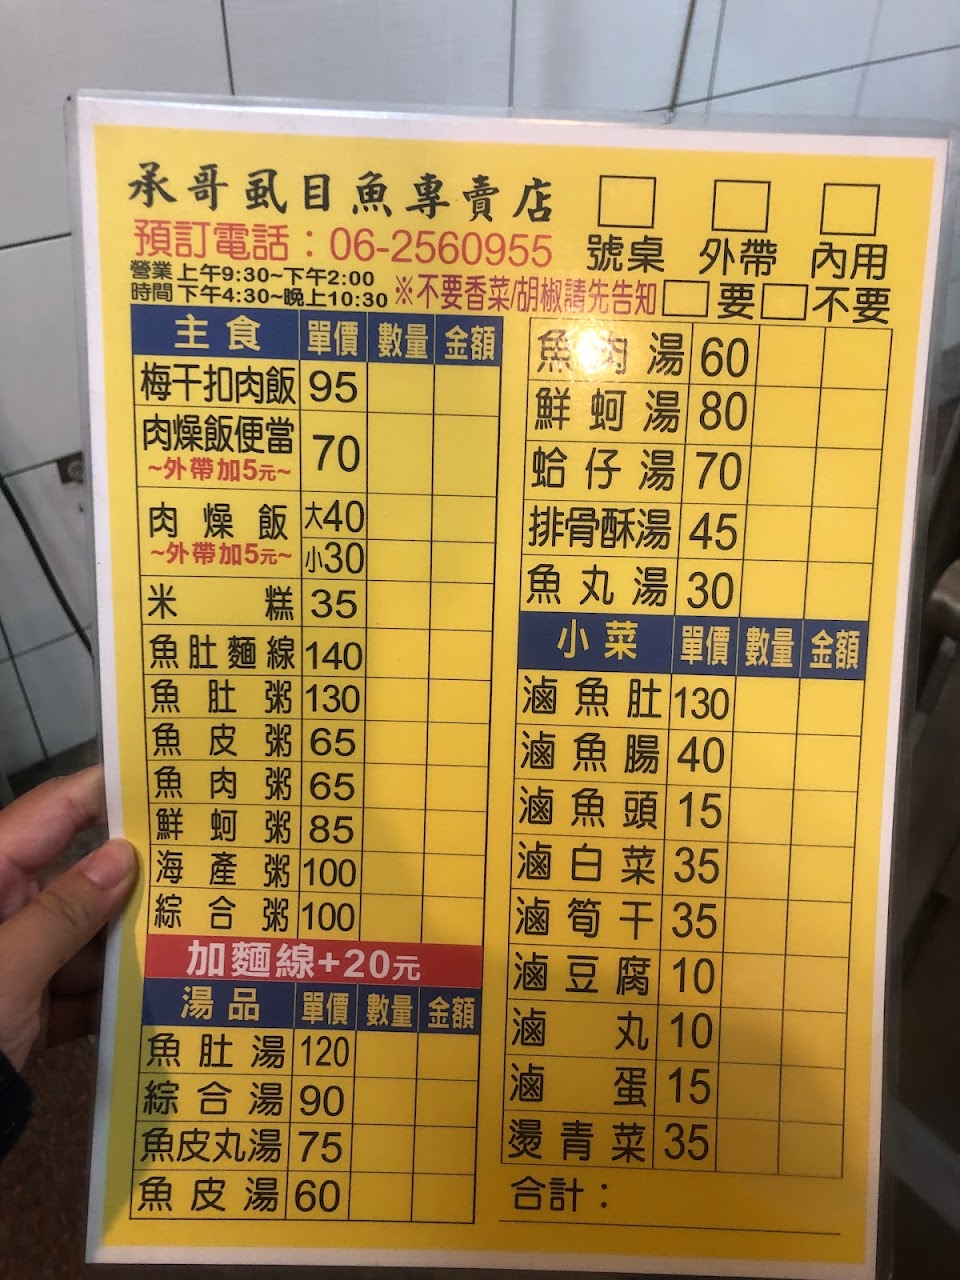 承哥虱目魚專賣店
預訂電話：06-2560955
營業時間 上午9:30~下午2:00
下午4:30~晚上10:30
※不要香菜/胡椒請先告知
號桌 外帶 內用
要 不要
主食 單價 數量 金額
梅干扣肉飯 95
肉燥飯便當 70
~外帶加5元~
肉燥飯 大40
~外帶加5元~ 小30
米糕 35
魚肚麵線 140
魚肚粥 130
魚皮粥 65
魚肉粥 65
鮮蚵粥 85
海產粥 100
綜合粥 100
加麵線+20元
湯品 單價 數量 金額
魚肚湯 120
綜合湯 90
魚皮丸湯 75
魚皮湯 60
魚肉湯 60
鮮蚵湯 80
蛤仔湯 70
排骨酥湯 45
魚丸湯 30
小菜 單價 數量 金額
滷魚肚 130
滷魚腸 40
滷魚頭 15
滷白菜 35
滷筍干 35
滷豆腐 10
滷丸 10
滷蛋 15
燙青菜 35
合計：